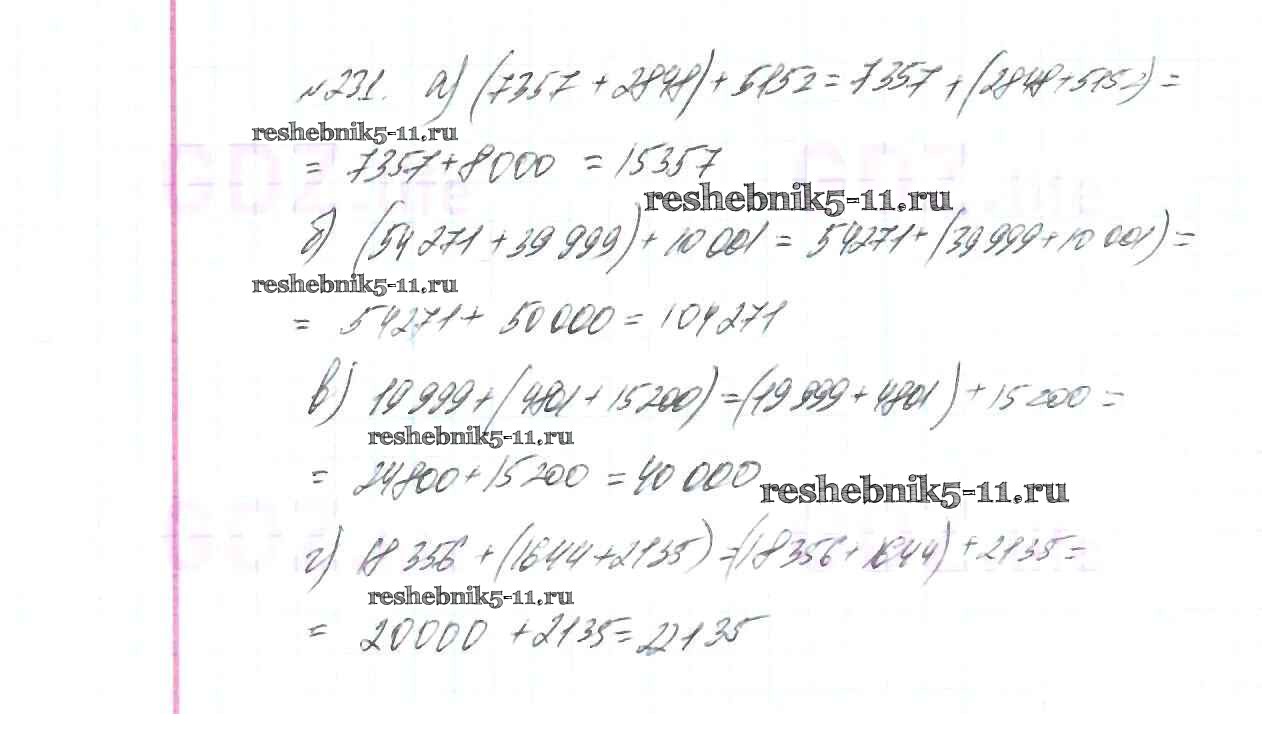 №231. а) (7357 + 2848) + 5152 = 7357 + (2848 + 5152) =
reshebnik5-11.ru
= 7357 + 8000 = 15357
reshebnik5-11.ru
б) (54 271 + 39 999) + 10 001 = 54271 + (39 999 + 10 001) =
reshebnik5-11.ru
= 54271 + 50000 = 104271
в) 19 999 + (4801 + 15 200) = (19 999 + 4801) + 15 200 =
reshebnik5-11.ru
= 24800 + 15 200 = 40 000
reshebnik5-11.ru
г) 18 356 + (1644 + 2135) = (18 356 + 1644) + 2135 =
reshebnik5-11.ru
= 20000 + 2135 = 22135